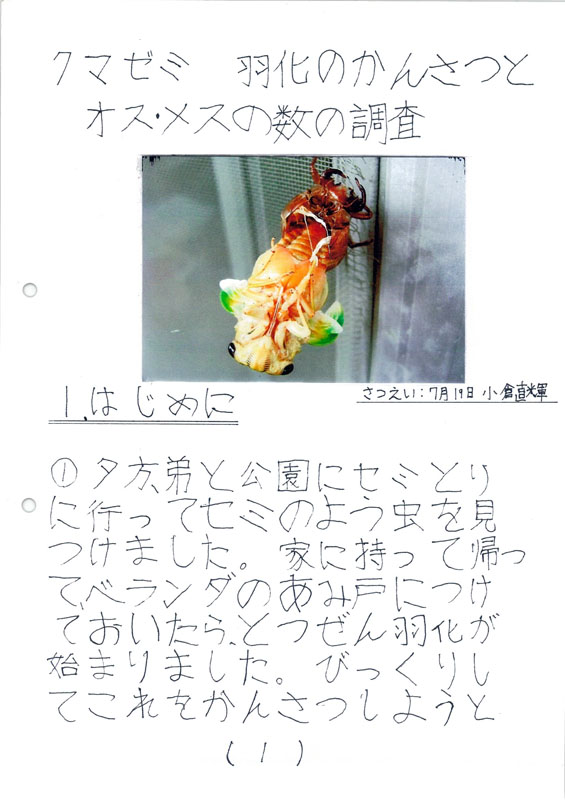 クマゼミ 羽化のかんさつと
オス・メスの数の調査
さつえい：7月19日 小倉直輝
1.はじめに
①夕方、弟と公園にセミとり
に行ってセミのよう虫を見
つけました。家に持って帰っ
て、ベランダのあみ戸につけ
ておいたら、とつぜん羽化が
始まりました。びっくりし
てこれをかんさつしようと
(1)